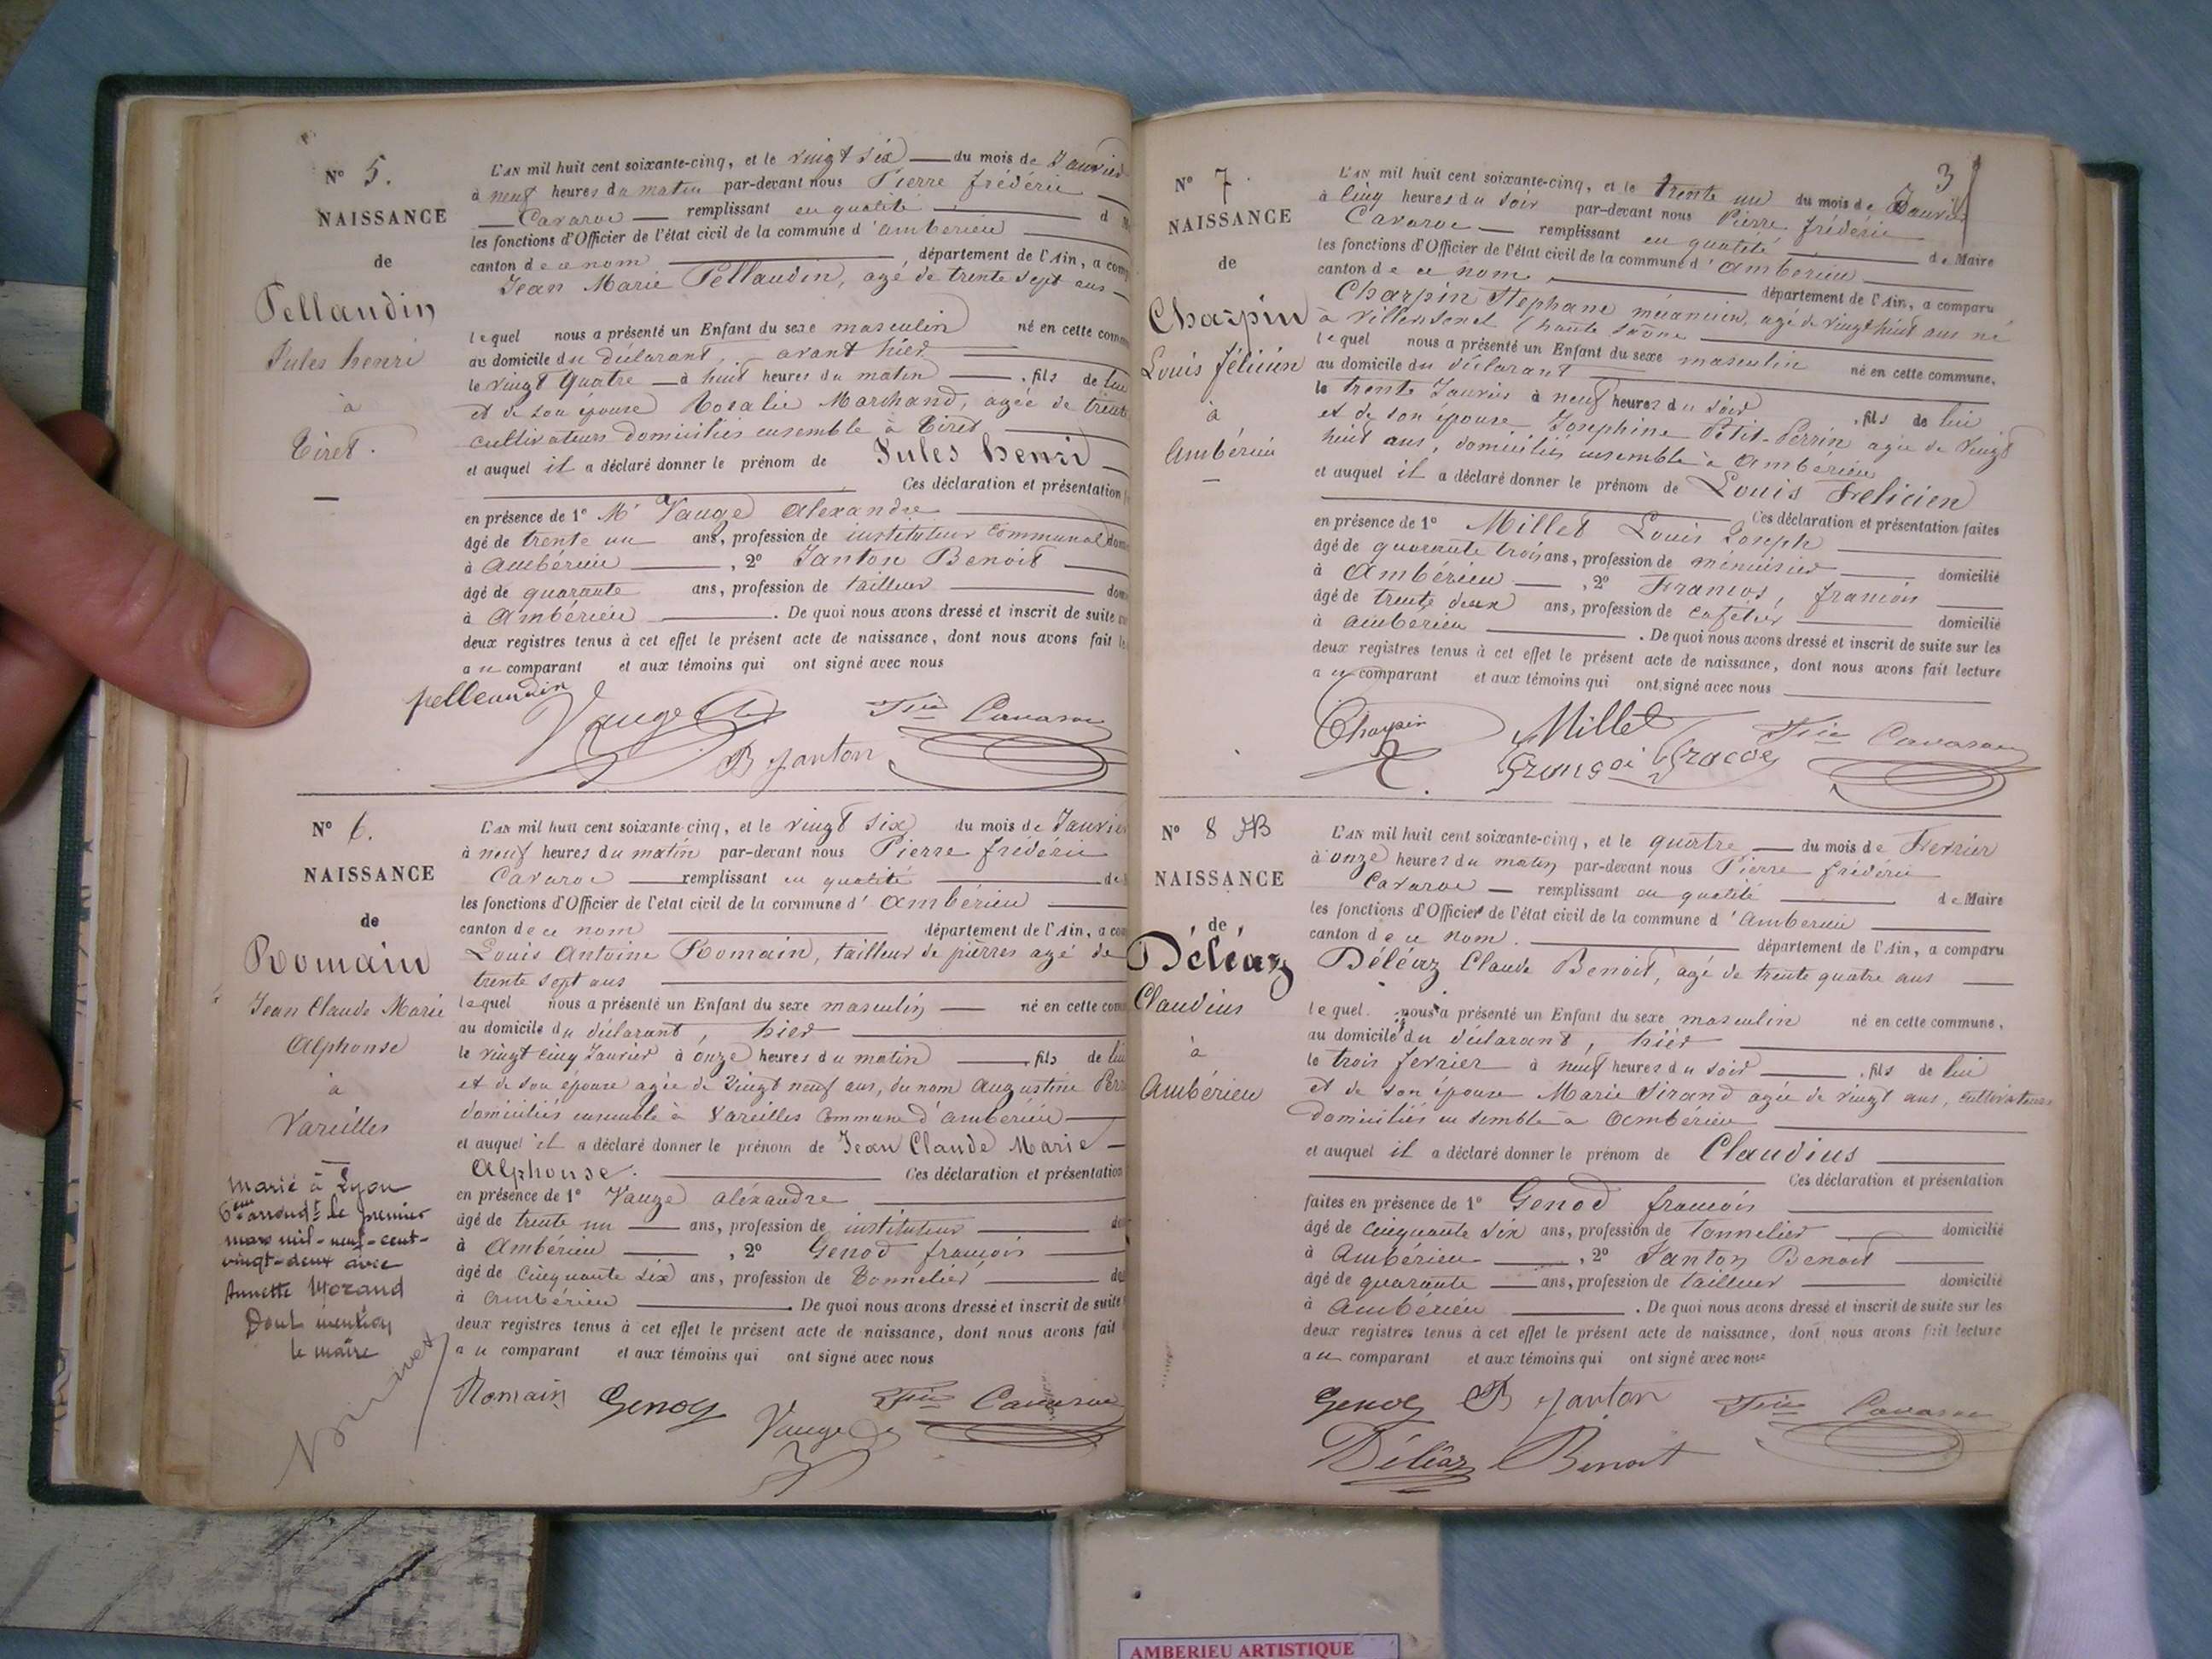 N° 5.
NAISSANCE
de
Pellaudin
Jules henri
à
Tiret.
L'AN mil huit cent soixante-cinq, et le vingt six du mois de Janvier
à neuf heures du matin par-devant nous Pierre frédéric
Cavaroc remplissant en qualité d
les fonctions d'Officier de l'état civil de la commune d'ambérieu
canton de ce nom, département de l'Ain, a
Jean Marie Pellaudin, agé de trente sept ans
lequel nous a présenté un Enfant du sexe masculin né en cette
au domicile du déclarant, avant hier
le vingt quatre à huit heures du matin, fils de lui
et de son épouse Rosalie Marchand, agée de trente
cultivateurs domiciliés ensemble à Tiret
et auquel il a déclaré donner le prénom de Jules henri
Ces déclaration et présentation
en présence de 1° Mr Vauge alexandre
âgé de trente un ans, profession de instituteur communal
à ambérieu, 2° Janton Benoit
âgé de quarante ans, profession de tailleur
à ambérieu. De quoi nous avons dressé et inscrit de suite
deux registres tenus à cet effet le présent acte de naissance, dont nous avons fait
au comparant et aux témoins qui ont signé avec nous
pelleaudin Vauge B Janton Cavaroc
N° 6.
NAISSANCE
de
Romain
Jean Claude Marie
Alphonse
à
Vareilles
marié à Lyon
6eme arrondt le premier
mars mil-neuf-cent-
vingt-deux avec
Annette Morand
Dont mention
le maire
L'AN mil huit cent soixante-cinq, et le vingt six du mois de Janvier
à neuf heures du matin par-devant nous Pierre frédéric
Cavaroc remplissant en qualité de
les fonctions d'Officier de l'état civil de la commune d'ambérieu
canton de ce nom département de l'Ain, a
Louis Antoine Romain, tailleur de pierres agé de
trente sept ans
lequel nous a présenté un Enfant du sexe masculin né en cette
au domicile du déclarant, hier
le vingt cinq Janvier à onze heures du matin, fils de lui
et de son épouse agée de vingt neuf ans, du nom augustine
domiciliés ensemble à Vareilles commune d'ambérieu
et auquel il a déclaré donner le prénom de Jean Claude Marie
Alphonse. Ces déclaration et présentation
en présence de 1° Vauge aléxandre
âgé de trente un ans, profession de instituteur
à Ambérieu, 2° Genod françois
âgé de cinquante six ans, profession de tonnelier
à ambérieu. De quoi nous avons dressé et inscrit de suite
deux registres tenus à cet effet le présent acte de naissance, dont nous avons fait
au comparant et aux témoins qui ont signé avec nous
Romain Genod Vauge Cavaroc
3
N° 7.
NAISSANCE
de
Charpin
Louis félicien
à
ambérieu
L'AN mil huit cent soixante-cinq, et le trente un du mois de Janvier
à cinq heures du soir par-devant nous Pierre frédéric
Cavaroc remplissant en qualité de Maire
les fonctions d'Officier de l'état civil de la commune d'ambérieu
canton de ce nom département de l'Ain, a comparu
Charpin Stephane mécanicien, agé de vingt huit ans né
à (haute saône
lequel nous a présenté un Enfant du sexe masculin né en cette commune,
au domicile du déclarant
le trente Janvier à neuf heures du soir, fils de lui
et de son épouse Josephine Petit-Perrin agée de vingt
huit ans, domiciliés ensemble à Ambérieu
et auquel il a déclaré donner le prénom de Louis Felicien
Ces déclaration et présentation faites
en présence de 1° Millet Louis Joseph
âgé de quarante trois ans, profession de menuisier domicilié
à Ambérieu, 2° françois
âgé de trente deux ans, profession de cafetier domicilié
à ambérieu. De quoi nous avons dressé et inscrit de suite sur les
deux registres tenus à cet effet le présent acte de naissance, dont nous avons fait lecture
au comparant et aux témoins qui ont signé avec nous
Charpin Millet Cavaroc
N° 8
NAISSANCE
de
Déléaz
Claudius
à
Ambérieu
L'AN mil huit cent soixante-cinq, et le quatre du mois de Fevrier
à onze heures du matin par-devant nous Pierre frédéric
Cavaroc remplissant en qualité de Maire
les fonctions d'Officier de l'état civil de la commune d'Amberieu
canton de ce nom. département de l'Ain, a comparu
Déléaz Claude Benoit, agé de trente quatre ans
lequel nous a présenté un Enfant du sexe masculin né en cette commune,
au domicile du déclarant, hier
le trois fevrier à neuf heures du soir, fils de lui
et de son épouse Marie Sirand agée de vingt ans, cultivateurs
domiciliés ensemble à ambérieu
et auquel il a déclaré donner le prénom de Claudius
Ces déclaration et présentation
faites en présence de 1° Genod francois
âgé de cinquante six ans, profession de tonnelier domicilié
à Ambérieu, 2° Janton Benoit
âgé de quarante ans, profession de tailleur domicilié
à ambérieu. De quoi nous avons dressé et inscrit de suite sur les
deux registres tenus à cet effet le présent acte de naissance, dont nous avons fait lecture
au comparant et aux témoins qui ont signé avec nous
Genod B Janton Cavaroc
Déléaz Benoit
AMBERIEU ARTISTIQUE